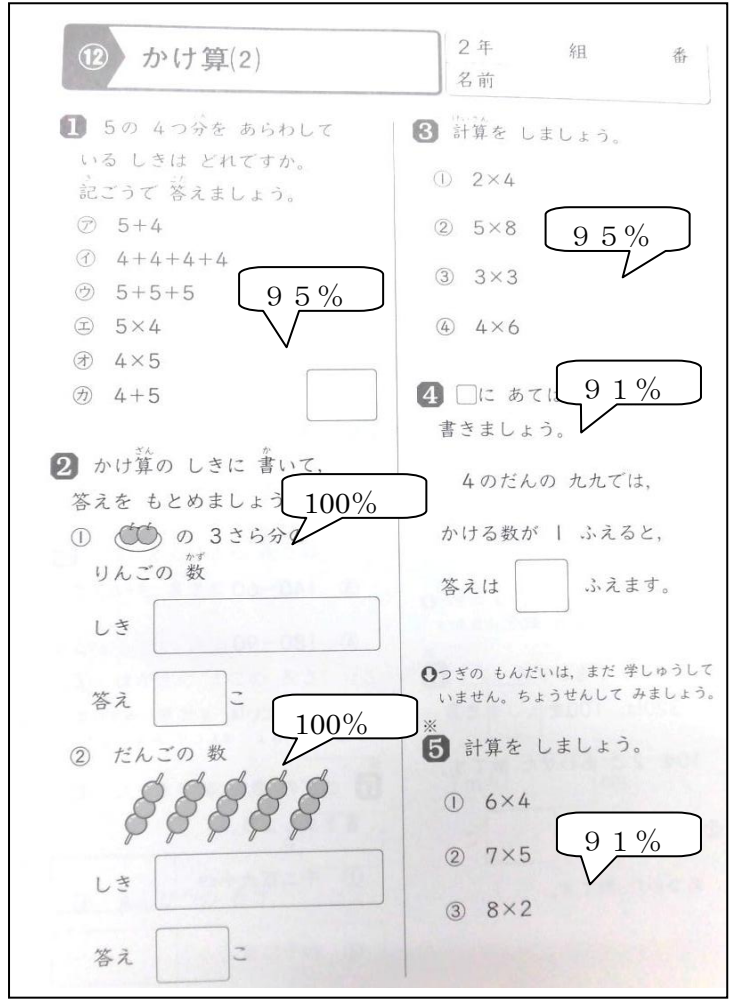 ⑫ かけ算(2)
2年 組 番
名前
1 5の 4つ分を あらわして
いる しきは どれですか。
記ごうで 答えましょう。
㋐ 5+4
㋑ 4+4+4+4
㋒ 5+5+5
㋓ 5×4
㋔ 4×5
㋕ 4+5
95%
2 かけ算の しきに 書いて,
答えを もとめましょう
100%
① の 3さら分の
りんごの 数
しき
答え こ
100%
② だんごの 数
しき
答え こ
3 計算を しましょう。
① 2×4
② 5×8
95%
③ 3×3
④ 4×6
4 □に あては
91%
書きましょう。
4のだんの 九九では,
かける数が 1 ふえると,
答えは ふえます。
つぎの もんだいは, まだ 学しゅうして
いません。ちょうせんして みましょう。
※
5 計算を しましょう。
① 6×4
② 7×5
91%
③ 8×2